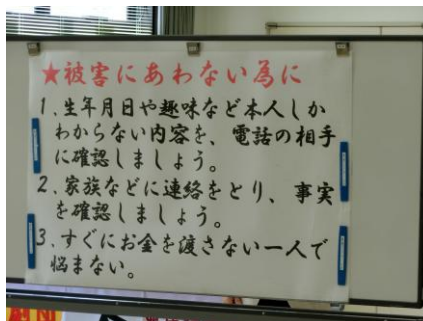 ★被害にあわない為に
1、生年月日や趣味など本人しか
わからない内容を、電話の相手
に確認しましょう。
2、家族などに連絡をとり、事実
を確認しましょう。
3、すぐにお金を渡さない一人で
悩まない。